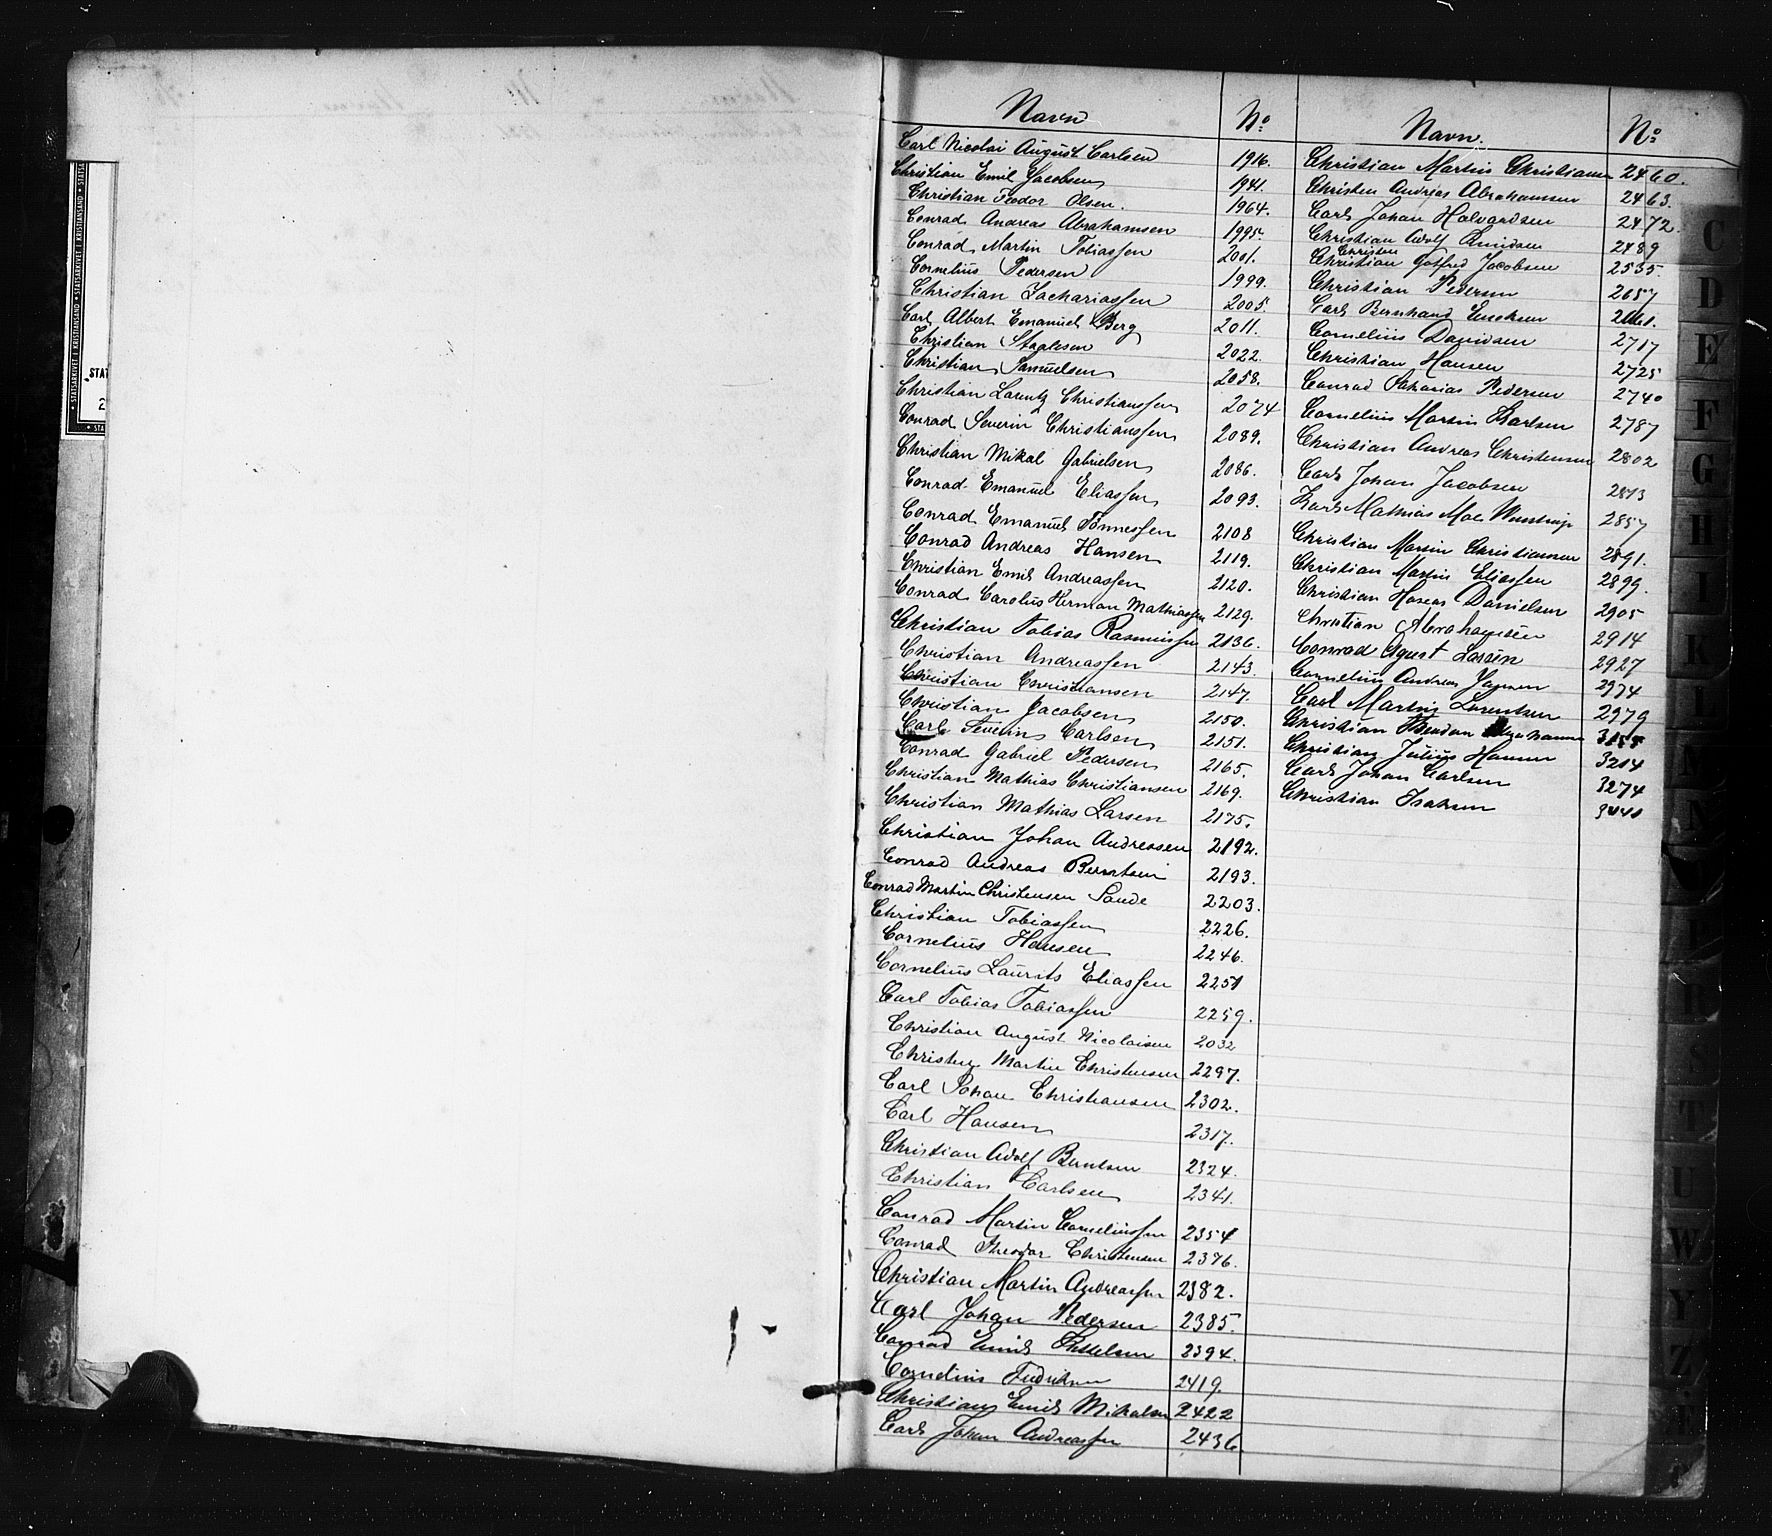 Navn No
Carl Nicolai August Carlsen 1916.
Christian Emil Jacobsen 1941.
Christian Feodor Olsen. 1964.
Conrad Andreas Abrahamsen 1995.
Conrad Martin Tobiassen 2001.
Cornelius Pedersen 1999.
Christian Zachariassen 2005.
Carl Albert Emanuel Berg 2011.
Christian Staalesen 2022.
Christian Samuelsen 2058.
Christian Lorentz Christianssen 2074
Conrad Severin Christianssen 2089.
Christian Mikal Gabrielsen 2086.
Conrad Emanuel Eliassen 2093.
Conrad Emanuel Tønnessen 2108
Conrad Andreas Hansen 2119.
Christian Emil Andreassen 2120.
Conrad Carolus Herman Mathiassen 2129.
Christian Tobias Rasmussen 2136.
Christian Andreassen 2143.
Christian Christiansen 2147.
Christian Jacobsen 2150.
Carl Severin Carlsen 2151.
Conrad Gabriel Pedersen 2165.
Christian Mathias Christiansen 2169.
Christian Mathias Larsen 2175.
Christian Johan Andreassen 2192.
Conrad Andreas Berntsen 2193.
Conrad Martin Christensen Lande 2203.
Christian Tobiassen 2226.
Cornelius Hansen 2246.
Cornelius Laurits Eliassen 2251
Carl Tobias Tobiassen 2259.
Christian August Nicolaisen 2032
Christen Martin Christensen 2297.
Carl Johan Christiansen 2302.
Carl Hansen 2317.
Christian Adolf Berntsen 2324.
Christian Carlsen 2341.
Conrad Martin Corneliussen 2354
Conrad Theodor Christensen 2376.
Christian Martin Andreassen 2382.
Carl Johan Pedersen 2385.
Conrad Emil 2394.
Cornelius Fredriksen 2419.
Christian Emil Mikalsen 2422
Carl Johan Andreassen 2436.
Navn. No
Christian Martin Christiansen 2460.
Christen Andreas Abrahamsen 2463.
Carl Johan Halvardsen 2472.
Christian Adolf Knudsen 2489
Christen
Christian Gotfred Jacobsen 2535.
Christian Pedersen 2657
Carl Bernhard Ericksen 2661.
Cornelius Davidsen 2717
Christian Hansen 2725
Conrad Sakarias Pedersen 2740
Cornelius Martin Karlsen 2787
Christian Andreas Christensen 2802
Carl Johan Jacobsen 2813
Karl Mathias Moe 2857
Christian Martin Christiansen 2891.
Christian Martin Eliassen 2899.
Christian Hoseas Danielsen 2905
Christian Abrahamsen 2914
Conrad Agust Larsen 2927
Cornelius Andreas Jansen 2974
Carl Martin Lorentzen 2979
Christian 3155
Christian Julius Hansen 3214
Carl Johan Carlsen 3274
Christian Isaksen 3441
STATSARKIVET I KRISTIANSAND • STATSARKIVET I KRISTIANSAND • STATS
STAT
2
C
D
E
F
G
H
I
K
L
M
N
P
R
S
T
U
W
Y
Z
Æ
Ø